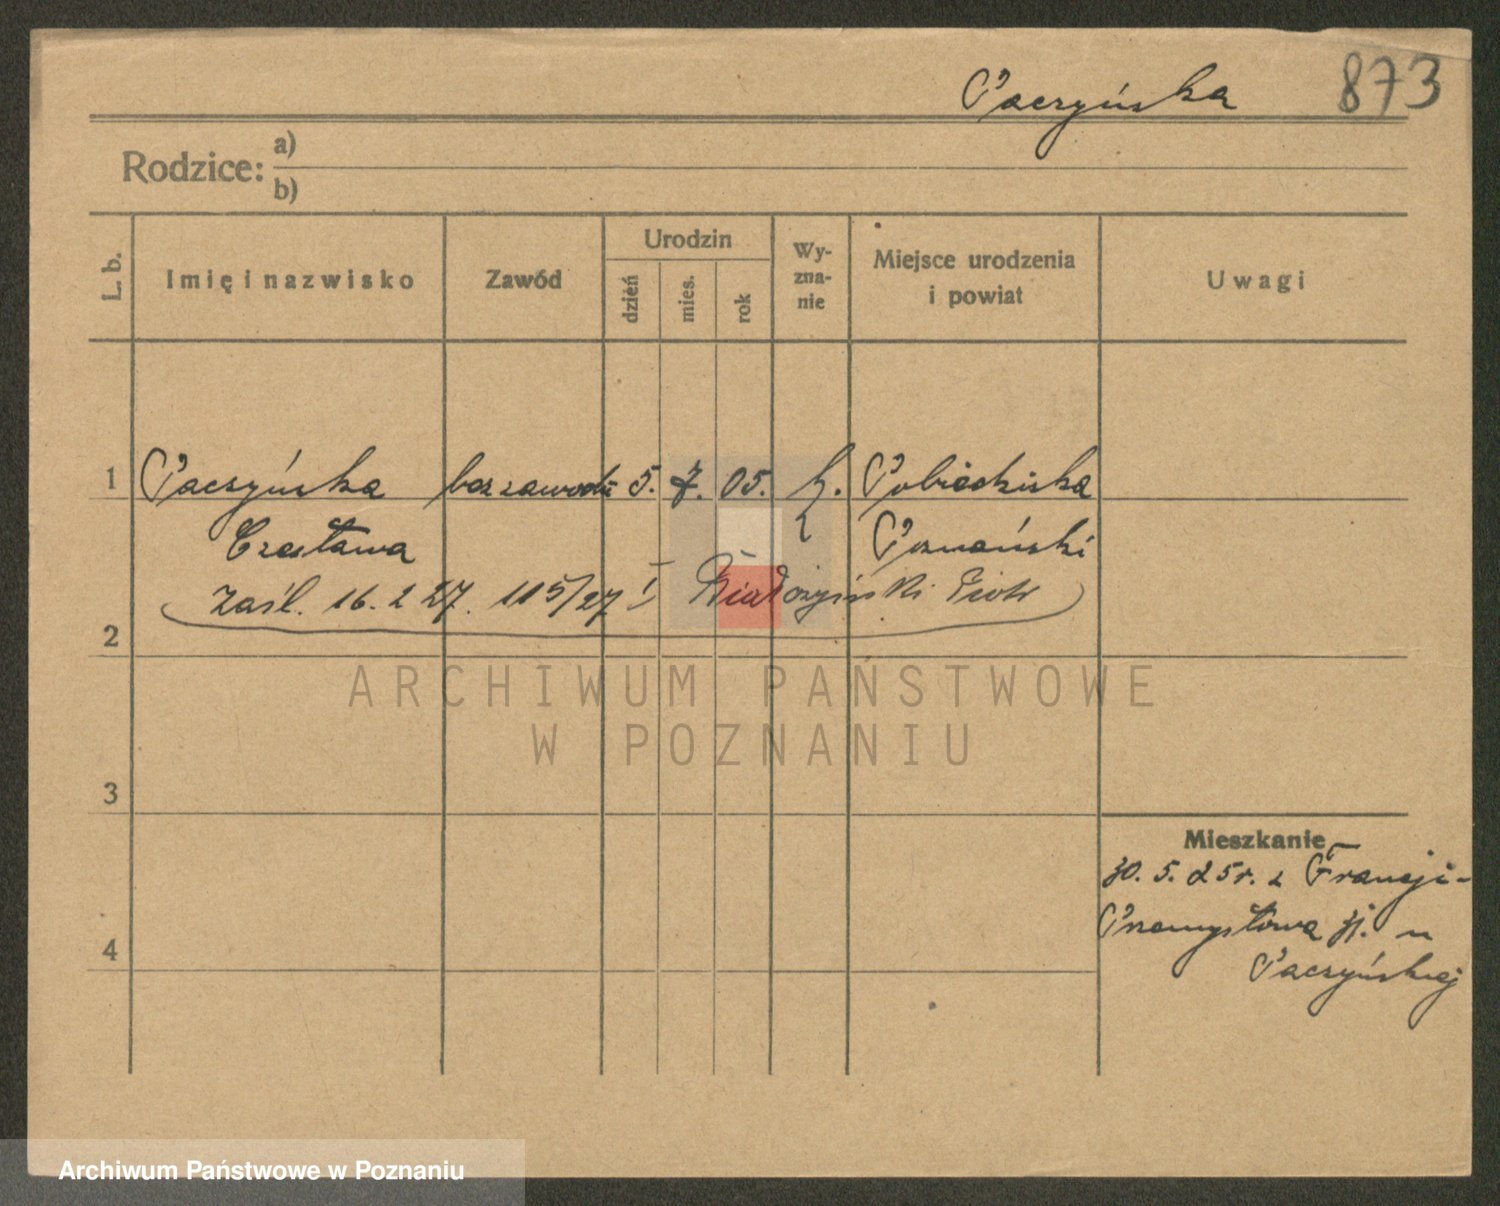 Paczyńska 873
Rodzice: a)
b)
L. b. Imię i nazwisko Zawód Urodzin dzień mies. rok Wy-zna-nie Miejsce urodzenia i powiat Uwagi
1 Paczyńska bez zawodu 5. 7. 05. k. Pobiedziska
Czesława Poznański
Zaśl. 16. 2 27. 115/27 I Piotr
2
ARCHIWUM PAŃSTWOWE
W POZNANIU
3
Mieszkanie
30. 5. 25 r. z Francji-
4 Przemysłowa 31. u
Paczyńskiej
Archiwum Państwowe w Poznaniu